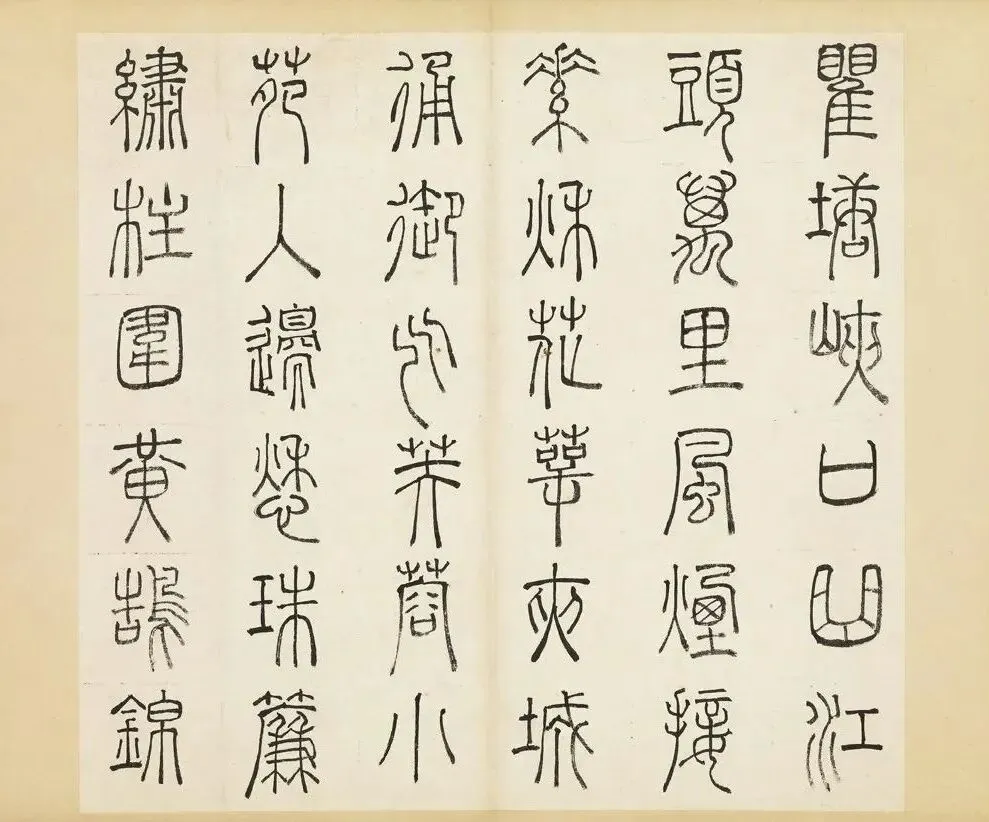 瞿塘峽口曲江
頭萬里風煙接
素秌花萼夾城
通御气芙蓉小
苑入邊愁珠簾
繡柱圍黃鵠錦